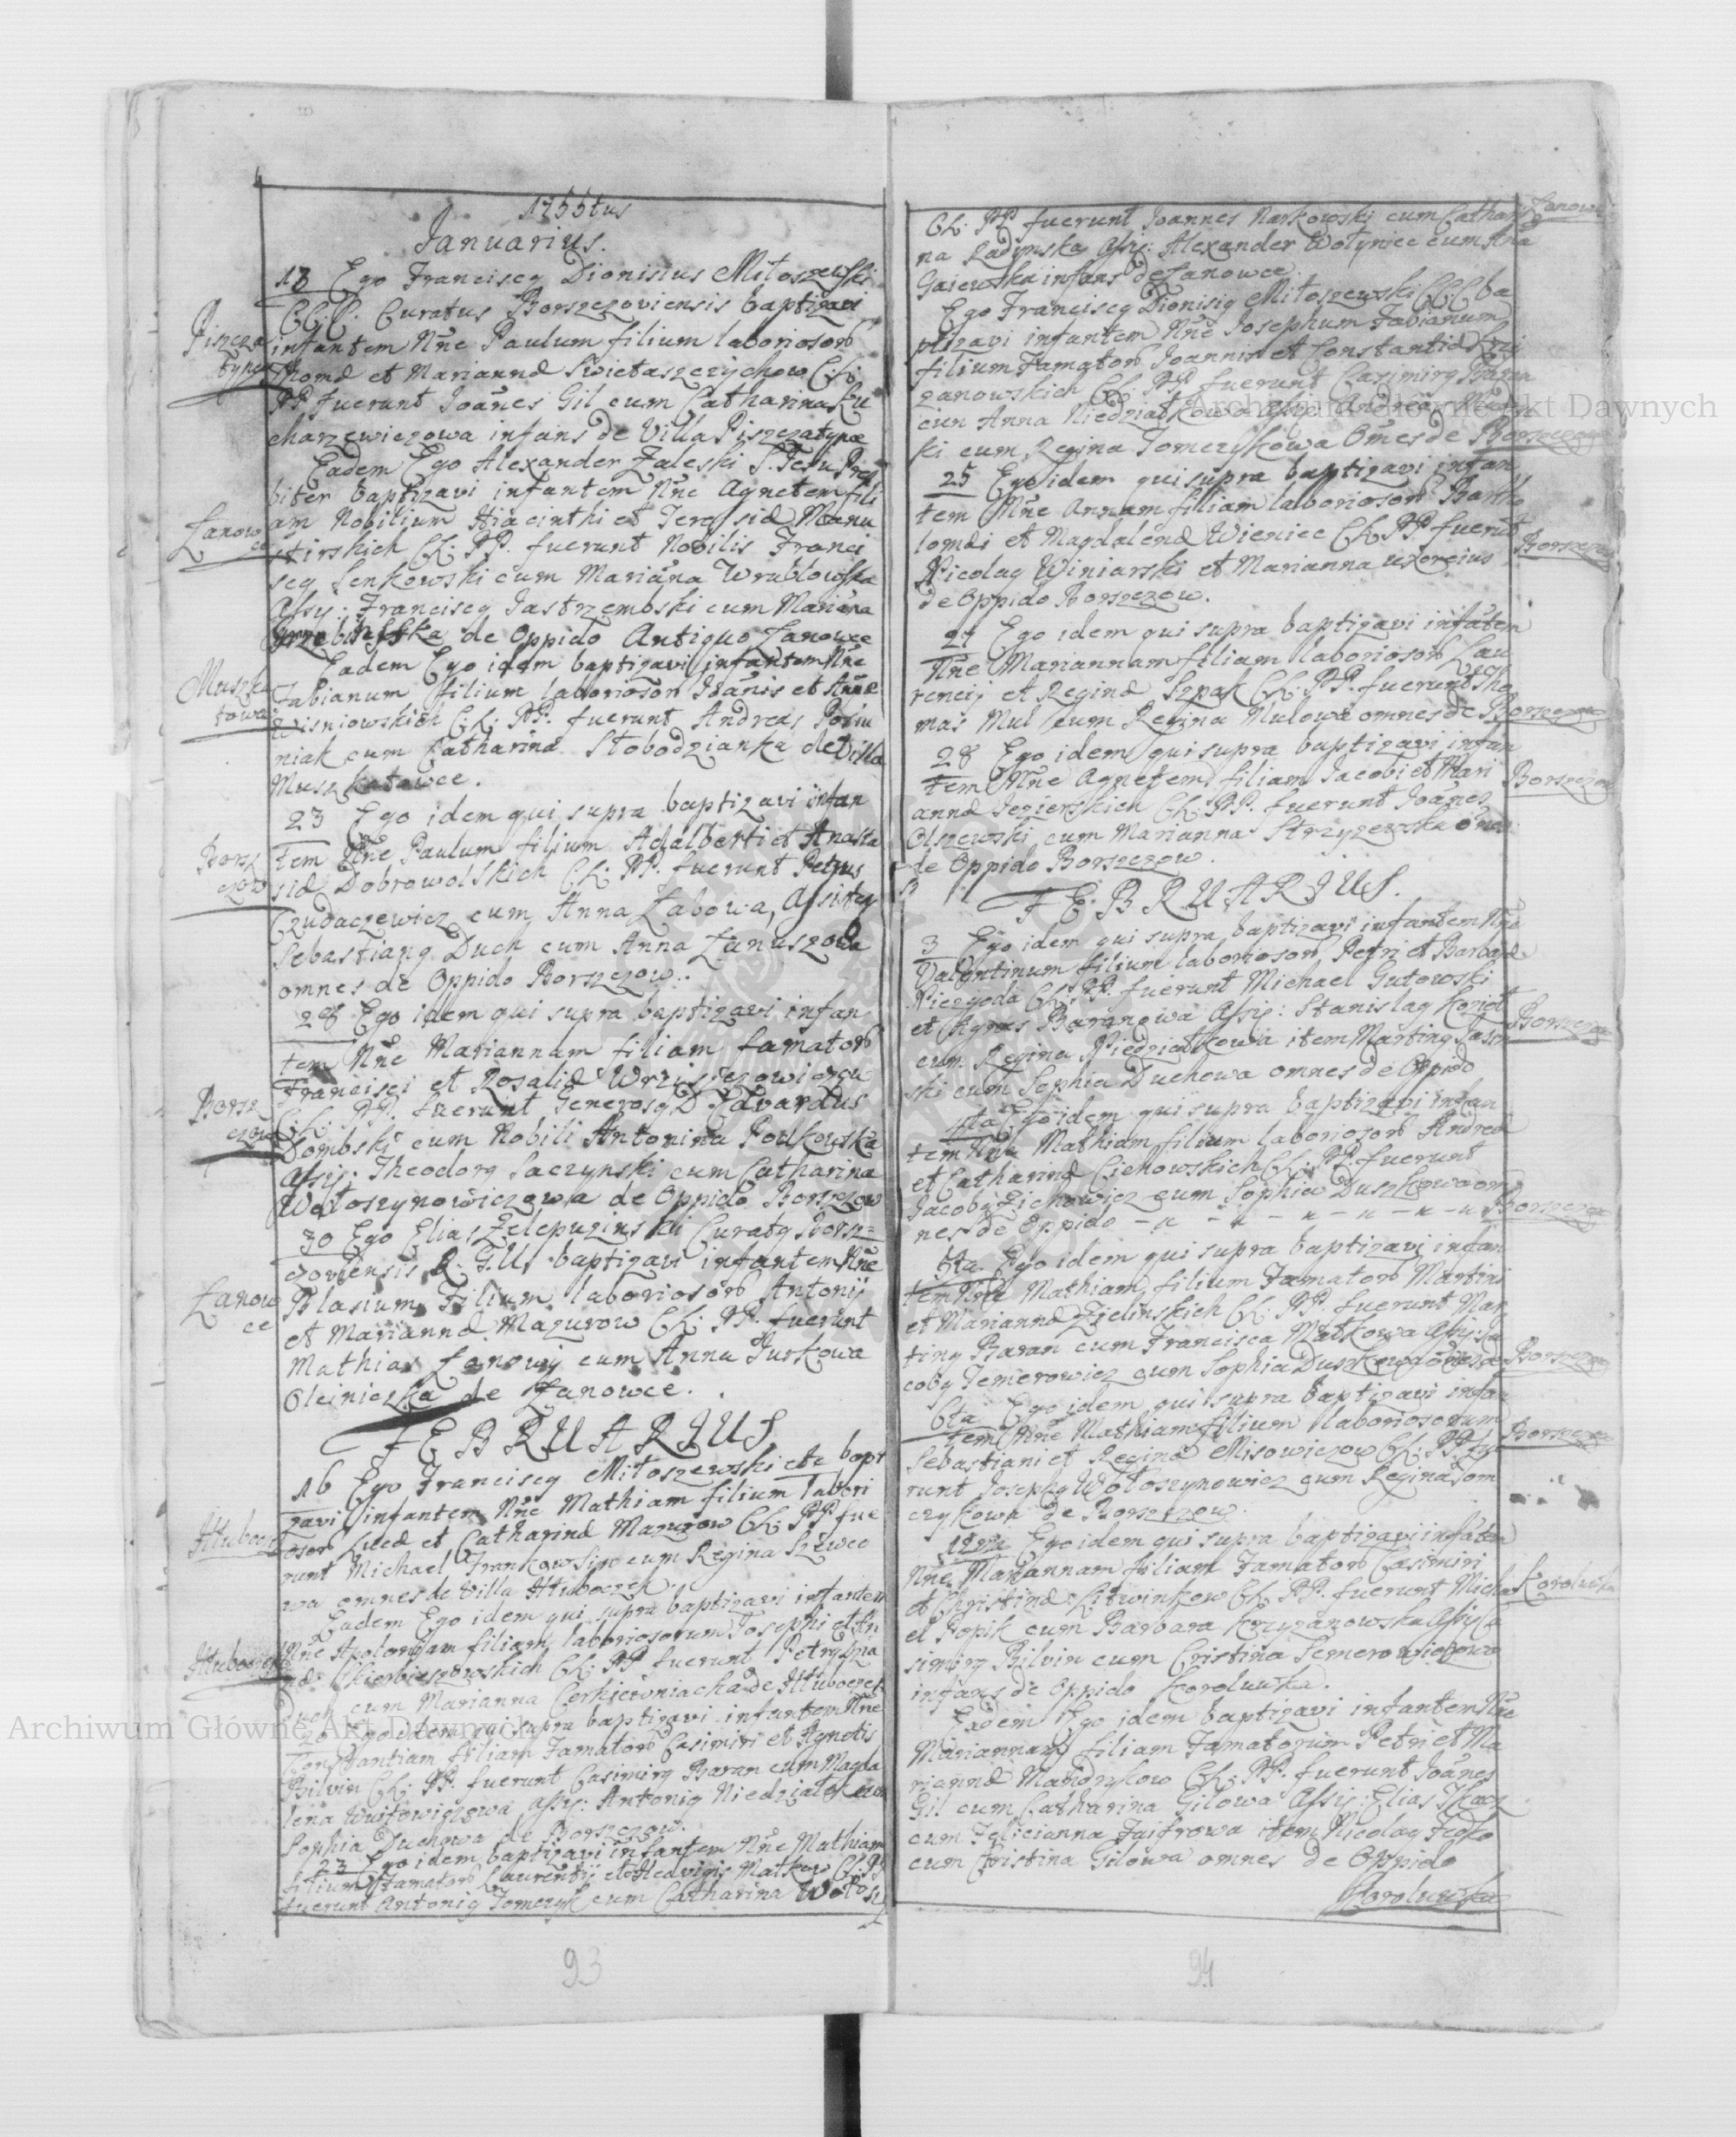 1755tus
Januarius.
18 Ego Franciscq Dionisius Miłoszewski
CC:C: Curatus Borszczoviensis baptizavi
Piszcza
infantem Nne Paulum filium laboriosorb
typce
Thomæ et Mariannæ Swietaszczychow C:L:
PP. fuerunt Joānes Gil cum Catharina Ku
charzewiczowa infans de Villa Piszczatynce
Eadem Ego Alexander Zaleski S. Jesu Pres
biter baptizavi infantem Nne Agnetem fili
Łanow
ce
am Nobilium Hiacinthi et Teressiæ Manu
stirskich CL: PP. fuerunt Nobilis Franci
scq Senkowski cum Mariāna Wrublowska
Assy: Franciscq Jastrzembski cum Mariāna
de Oppido Antiquo Łanowce
Eadem Ego idem baptizavi infantem Nne
Muszka
towce
Fabianum filium laborioson Joānis et Annæ
Wisniowskich C:L: PP. fuerunt Andreas Podlu
niak cum Catharina Słobodzianka de Villa
Muszkatowce.
23 Ego idem qui supra baptizavi infan
Borsz
czow
tem Nne Paulum filium Adalberti et Anasta
siæ Dobrowolskich CL: PP. fuerunt Petrus
Czudaczewicz cum Anna Łabowa, Assistey
Sebastianq Duch cum Anna Łanuszowa
omnes de Oppido Borszczow.
28 Ego idem qui supra baptizavi infan
tem Nne Mariannam filiam famatorb
Borsz
czow
Francisci et Rosaliæ
C:L: PP. fuerunt Generosq D Edvardus
Dombski cum Nobili Antonina Poulkowska
Assy: Theodorq Saczynski cum Catharina
Wołoszynowiczowa de Oppido Borszczow
30 Ego Elias Zelepuzinskii Curatq Borsz=
czoviensis R. G. U. baptizavi infantem Nne
Łanow
ce
Blasium Filium laboriosorb Antonij
et Mariannæ Mazurow CL: PP. fuerunt
Mathias Łanowy cum Anna Jurkowa
Oleiniczka de Łanowce.
FEBRUARIUS
16 Ego Franciscq Miłoszewski etc bapt
zavi infantem Nne Mathiam filium labori
Hłuboczek
oson Lucæ et Catharinæ Mazurow CL: PP. fue
runt Michael Frankowsin cum Regina Szewco
wa omnes de Villa Hłuboczek.
Eadem Ego idem qui supra baptizavi infantem
Hłuboczek
Nne Apoloniam filiam laboriosorum Josephi et An
næ Skierbieszewskich CL: PP fuerunt
cum Marianna Cerkiewniacha de Hłuboczek
20 Ego idem qui supra baptizavi infantem Nne
Constantiam filiam Famatorb Casimiri et Agnetis
Bilvin CL: PP. fuerunt Casimirq Baran cum Magda
lena Wuitowiczowa Assy: Antoniq Niedziałek cum
Sophia Duchowa de Borszczow.
23 Ego idem baptizavi infantem Nne Mathiam
filium Famatorb Laurentij et Hedvigis Matkow CL: PP
fuerunt Antoniq Tomczyk cum Catharina Wołosz
93
CL: PP fuerunt Joannes Narkowski cum Cathari
Łanowce
na Radynska Assy: Alexander Wołyniec cum Anna
Gaiewska infans de Łanowce.
Ego Franciscq Dionisiq Miłoszewski CC:C ba
ptizavi infantem Nne Josephum Fabianum
filium Famatorb Joannis et Constantiæ Krzi
zanowskich CL: PP fuerunt Casimirq Baran
cum Anna Niedziałkowa Assy: Andreas
ki cum Regina Tomczykowa Omes de Borszczow
25 Ego idem qui supra baptizavi infan
tem Nne Annam filiam laboriosorb Bartho
lomæi et Magdalenæ Wieniec CL: PP fuerūt
Borszczow
Nicolaq Winiarski et Marianna uxoreius
de Oppido Borszczow.
27 Ego idem qui supra baptizavi infātem
Nne Mariannam filiam laborioson Lau
rencij et Reginæ Szpak CL: PP. fuerunt Tho
mas Mul cum Regina Mulowa omnes de Borszczow
28 Ego idem qui supra baptizavi infan
tem Nne Agnetem filiam Jacobi et Mari
Borszczow
annæ Jezierskich CL: PP. fuerunt Joānes
Olszewski cum Marianna Strzyzewska omes
de Oppido Borszczow.
FEBRUARIUS.
3 Ego idem qui supra baptizavi infantem Nne
Valentinum filium laborioson Petri et Barbaræ
Niezgoda CL: PP. fuerunt Michael Gutowski
et Agnes Baranowa Assy: Stanislaq Kozioł
Borszczow
cum Regina Niedziałkowa item Martinq Jasin
ski cum Sophia Duchowa omnes de Oppido
4ta Ego idem qui supra baptizavi infan
tem Nne Mathiam filium laboriosorb Andreæ
et Catharinæ Ciehowskich CL: PP. fuerunt
Jacobq Zichowicz cum Sophia Duszkowa om
nes de Oppido Borszczow
5ta Ego idem qui supra baptizavi infan
tem Nne Mathiam filium Famatorb Martini
et Mariannæ Zielinskich CL: PP. fuerunt Mar
tinq Baran cum Francisca Matkowa Assy: Ja
cobq Temerowicz cum Sophia Duszkowa omes de Borszczow
6ta Ego idem qui supra baptizavi infan
tem Nne Mathiam filium laboriosorum
Borszczow
Sebastiani et Reginæ Misowiczow CL: PP. fue
runt Josephq Wołoszynowicz cum Regina Tom
czykowa de Borszczow.
Ego idem qui supra baptizavi infātem
Nne Mariannam filiam Famatorb Casimiri
Korolwka
et Christinæ Litwinkow CL: PP. fuerunt Micha
el Popik cum Barbara Krzyzanowska Assy Ca
simirq Bilvin cum Cristina Semerowiczowa
infans de Oppido Korolwka.
Eadem Ego idem baptizavi infantem Nne
Mariannam filiam Famatorum Petri et Ma
riannæ Mandzykow CL: PP. fuerunt Joānes
Gil cum Catharina Gilowa Assy: Elias Tkacz
cum Felicianna Faifrowa item Nicolaq Fedko
cum Cristina Gilowa omnes de Oppido
Korolwka
94
Archiwum Główne Akt Dawnych
Archiwum Główne Akt Dawnych